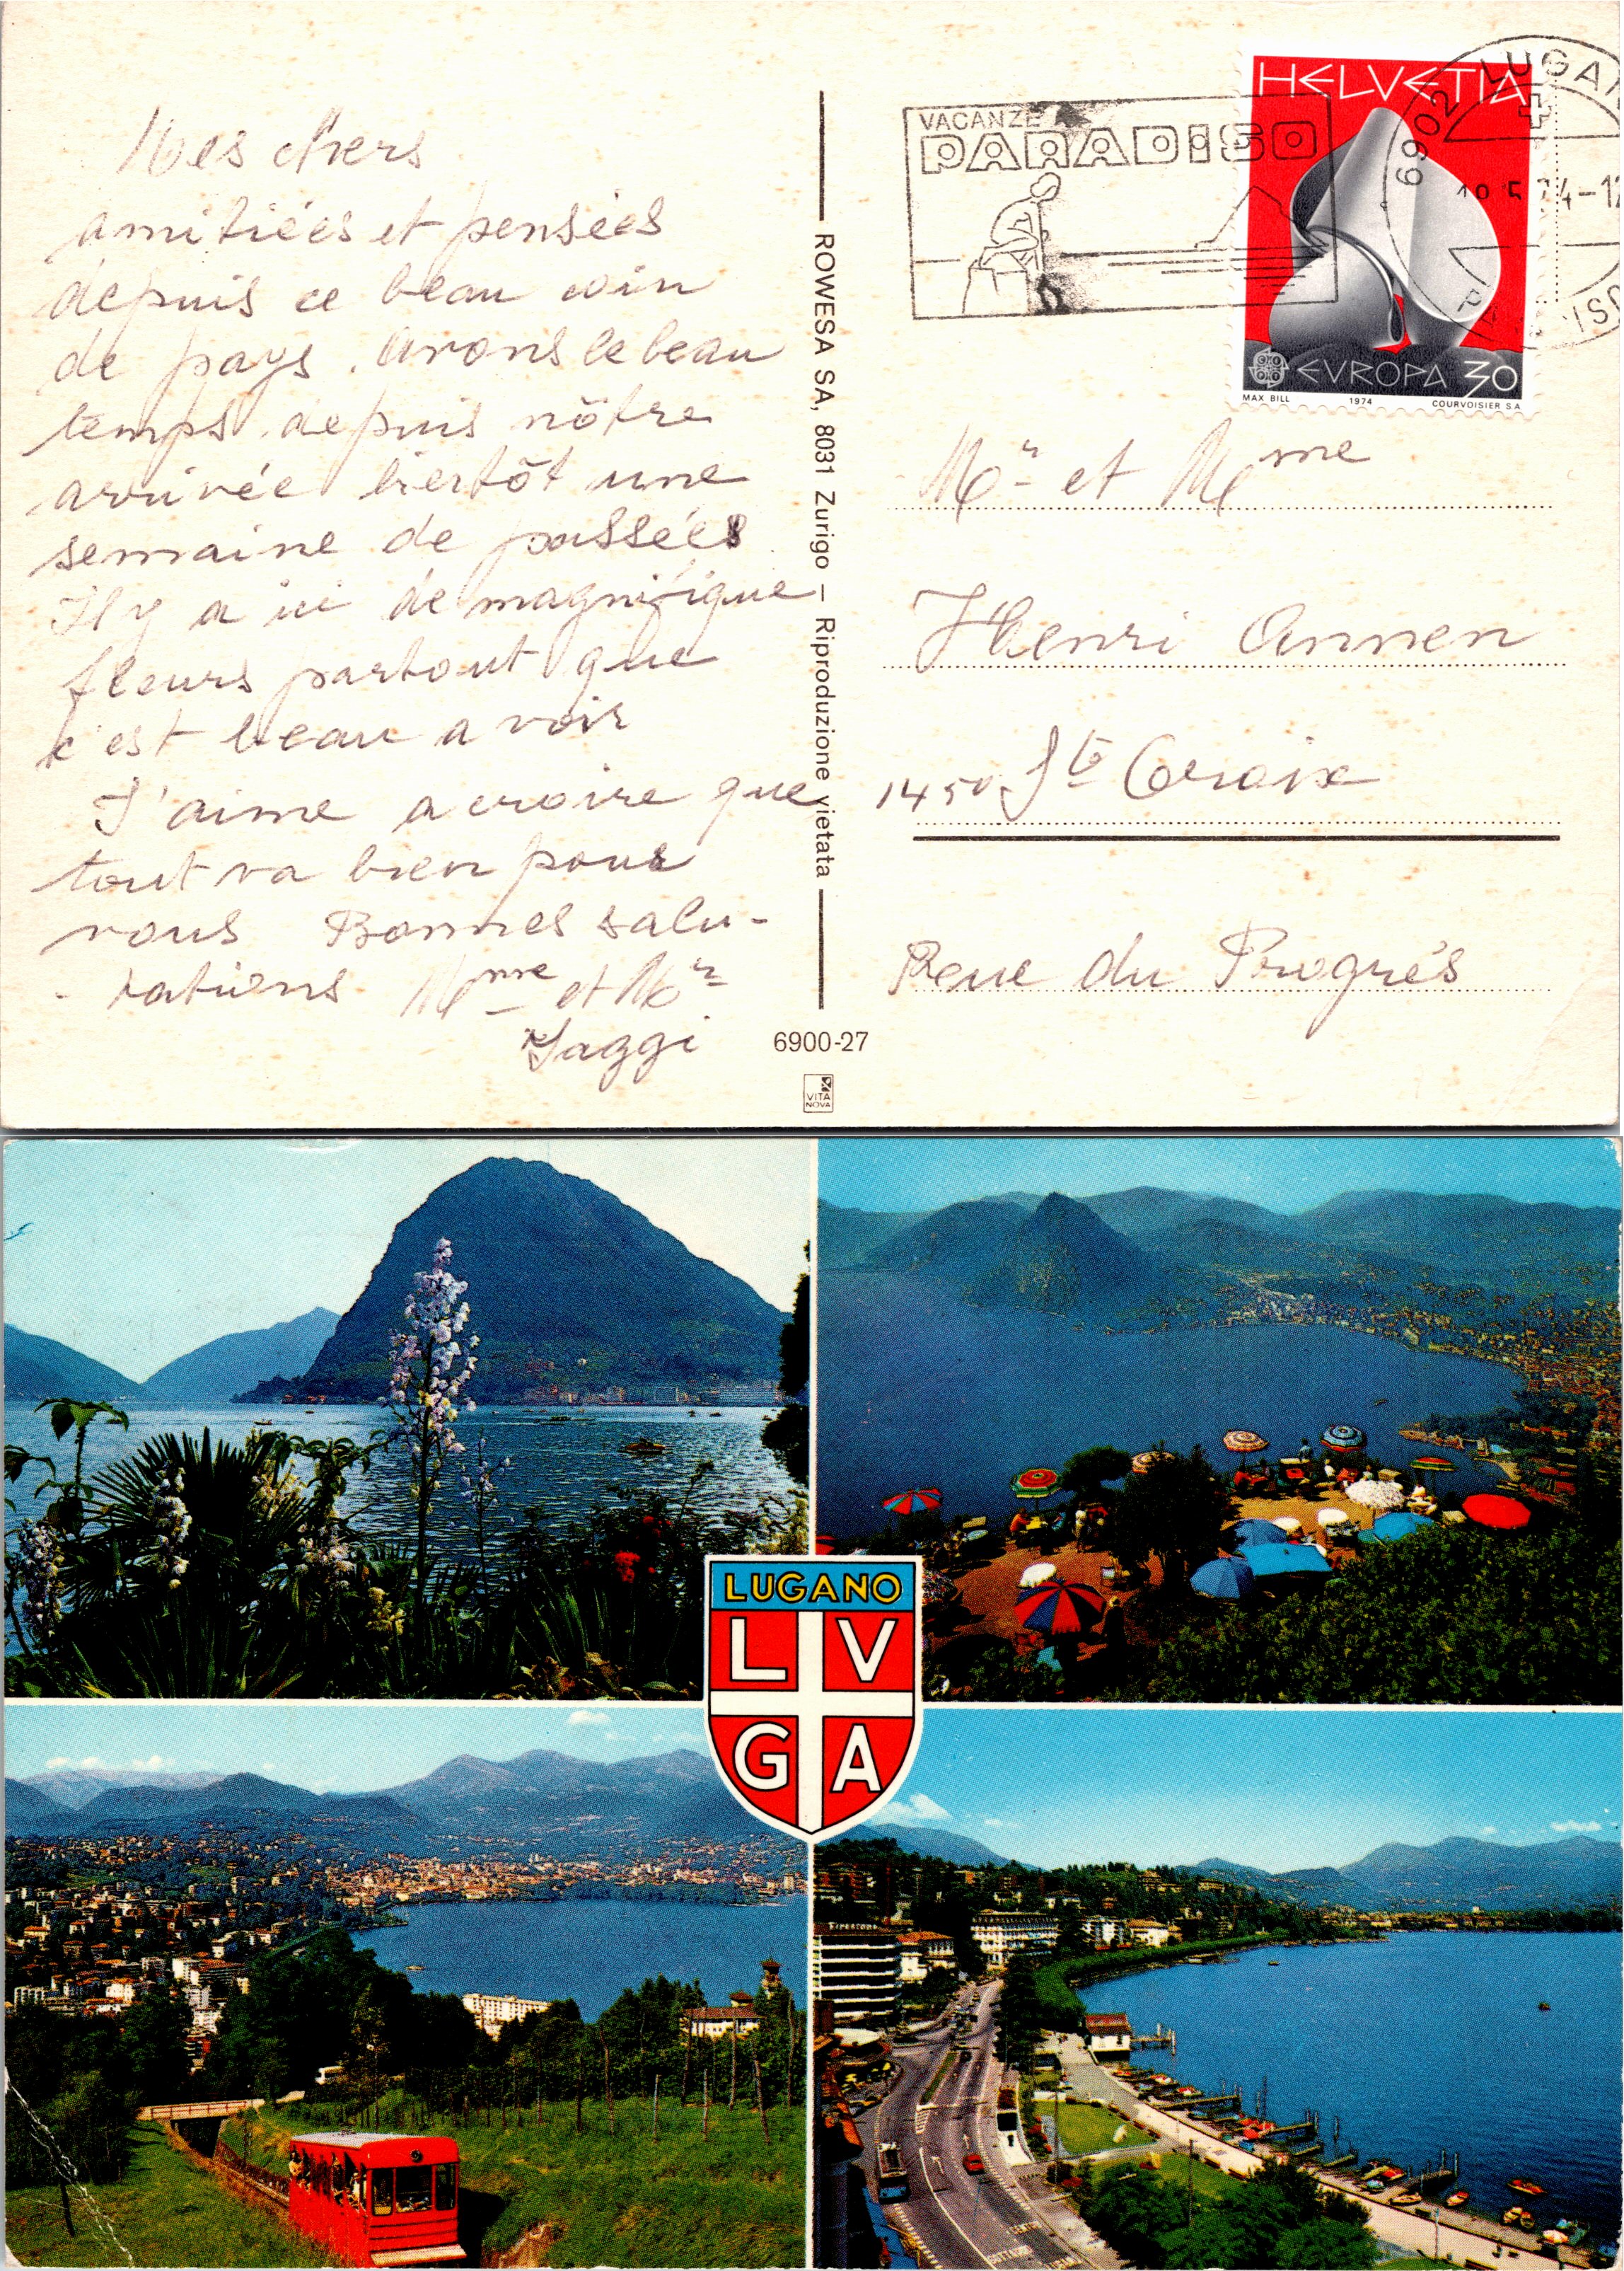 Mes chers
amitiées et pensées
depuis ce beau coin
de pays. Avons le beau
temps depuis nôtre
arrivée bientôt une
semaine de passées
Il y a ici de magnifique
fleurs partout que
c'est beau a voir
J'aime a croire que
tout va bien pour
vous Bonnes salu-
tations Mme et Mr
Jaggi
ROWESA SA, 8031 Zurigo — Riproduzione vietata
6900-27
VITA
NOVA
VACANZE
PARADISO
HELVETIA
EVROPA 30
MAX BILL 1974 COURVOISIER S A
6902 LUGAN
-12
Mr et Mme
Henri Annen
1450 Ste Croix
Rue du Progrés
LUGANO
L V
G A
Firestone